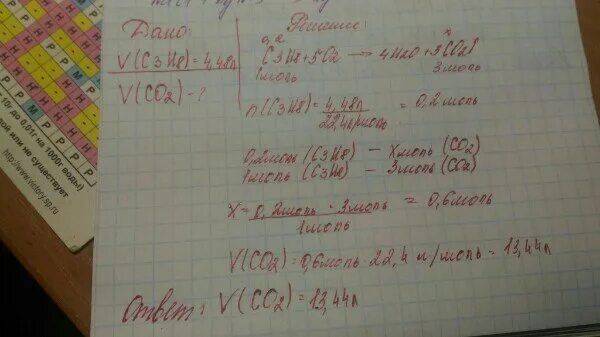 Дано:
V(C3H8)=4,48л
V(CO2)-?
Решение:
0,2 x
C3H8+5O2 → 4H2O+3CO2↑
1моль 3моль
n(C3H8)=4,48л/22,4л/моль = 0,2моль
0,2моль (C3H8) - xмоль (CO2)
1моль (C3H8) - 3моль (CO2)
X=0,2моль · 3моль/1моль = 0,6моль
V(CO2)=0,6моль·22,4 л/моль=13,44л
Ответ: V(CO2)=13,44л
10г до 0,01г на 1000г воды)
ой или не существует
http://www.victory.sp.ru